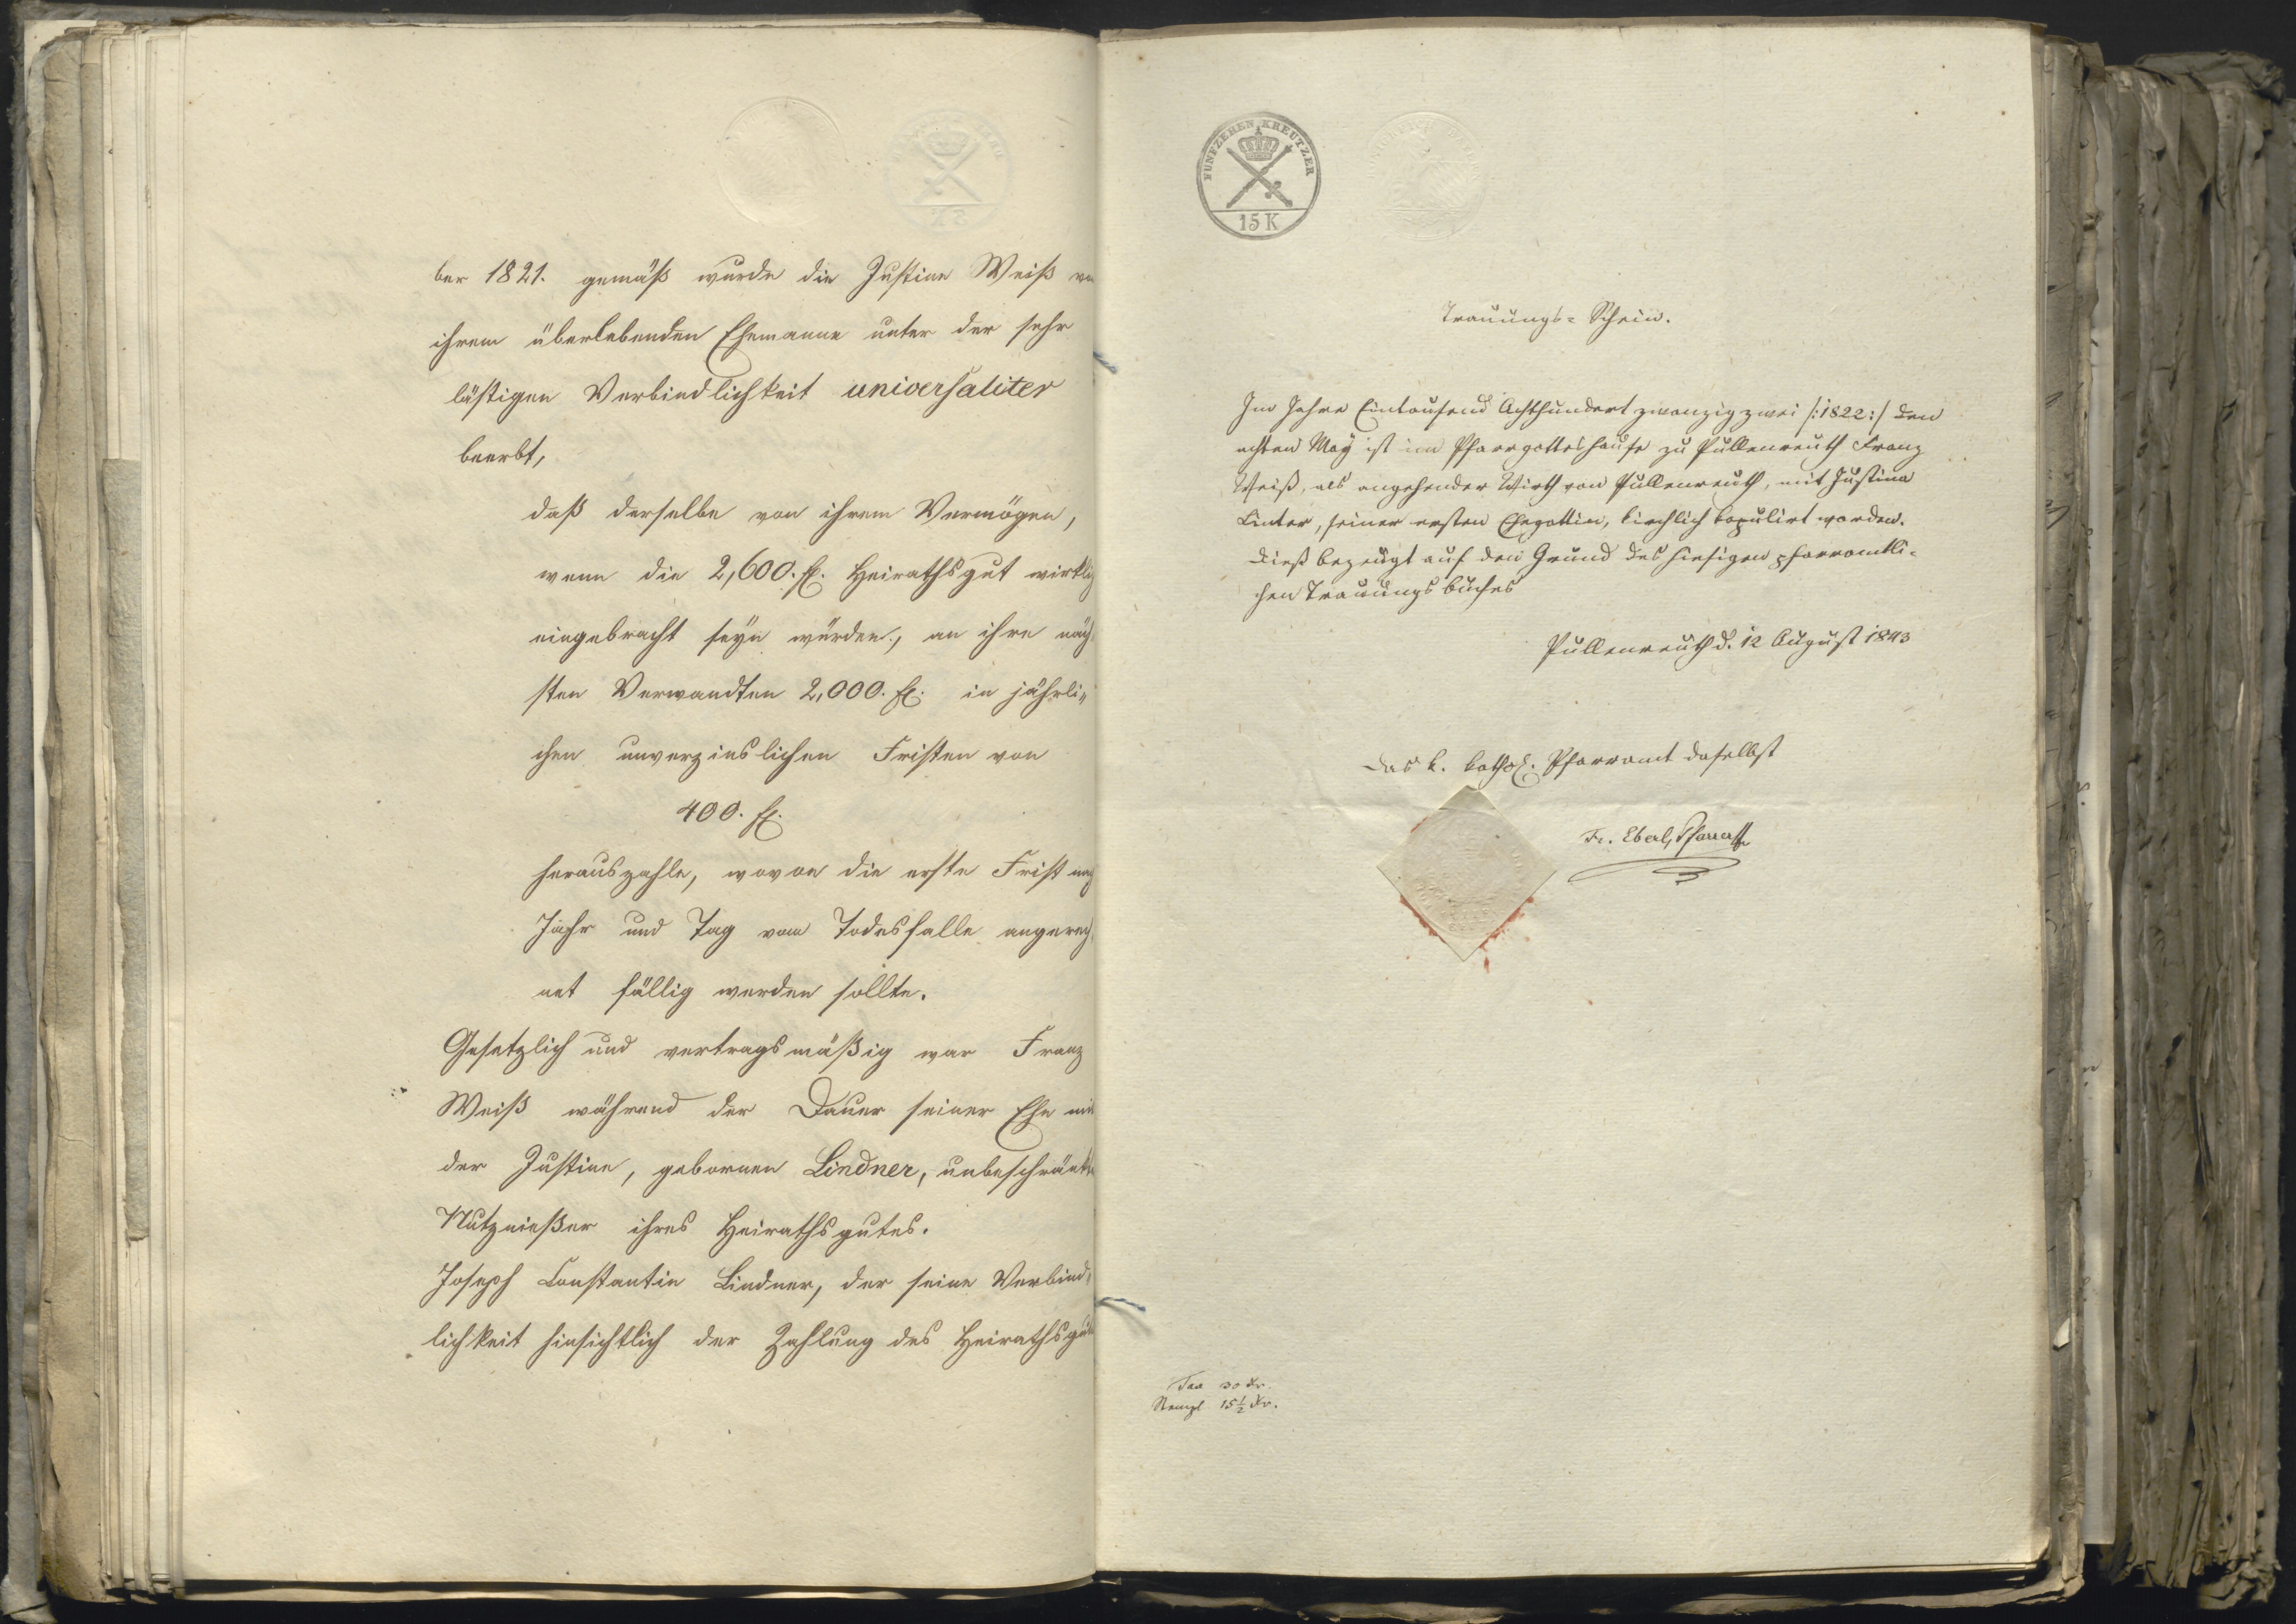 ber 1821. gemäß wurde die Justine Weiß
ihrem überlebenden Ehemanne unter der sehr
lästigen Verbindlichkeit universaliter
beerbt,
daß derselbe von ihrem Vermögen,
wenn die 2,600. fl. Heirathsgut wirklich
eingebracht seyn würden, an ihre näch-
sten Verwandten 2,000. fl. in jährli„
chen unverzinslichen Fristen von
400. fl.
herauszahle, wovon die erste Frist nach
Jahr und Tag vom Todesfalle angerech-
net fällig werden sollte.
Gesetzlich und vertragsmäßig war Franz
Weiß während der Dauer seiner Ehe mit
der Justine, gebornen Lindner, unbeschränkter
Nutznießer ihres Heirathsgutes.
Joseph Constantin Lindner, der seine Verbind-
lichkeit hinsichtlich der Zahlung des Heirathsgutes
FÜNFZEHEN KREUTZER
15 K
Trauungs= Schein.
Im Jahre Eintausend Achthundert zwanzig zwei /:1822:/ den
achten May ist im Pfarrgotteshause zu Pullenreuth Franz
Weiß, als angehender Wirth von Pullenreuth, mit Justina
Linter, seiner ersten Ehegattin, kirchlich kopulirt worden.
Dieß bezeugt auf den Grund des hiesigen pfarramtli-
chen Trauungsbuches
Pullenreuth d. 12 August 1843
Das k. kathol. Pfarramt daselbst
Fr. Eberl, Pfarrer
Tax 30 Kr.
Stempl 15½ Kr.